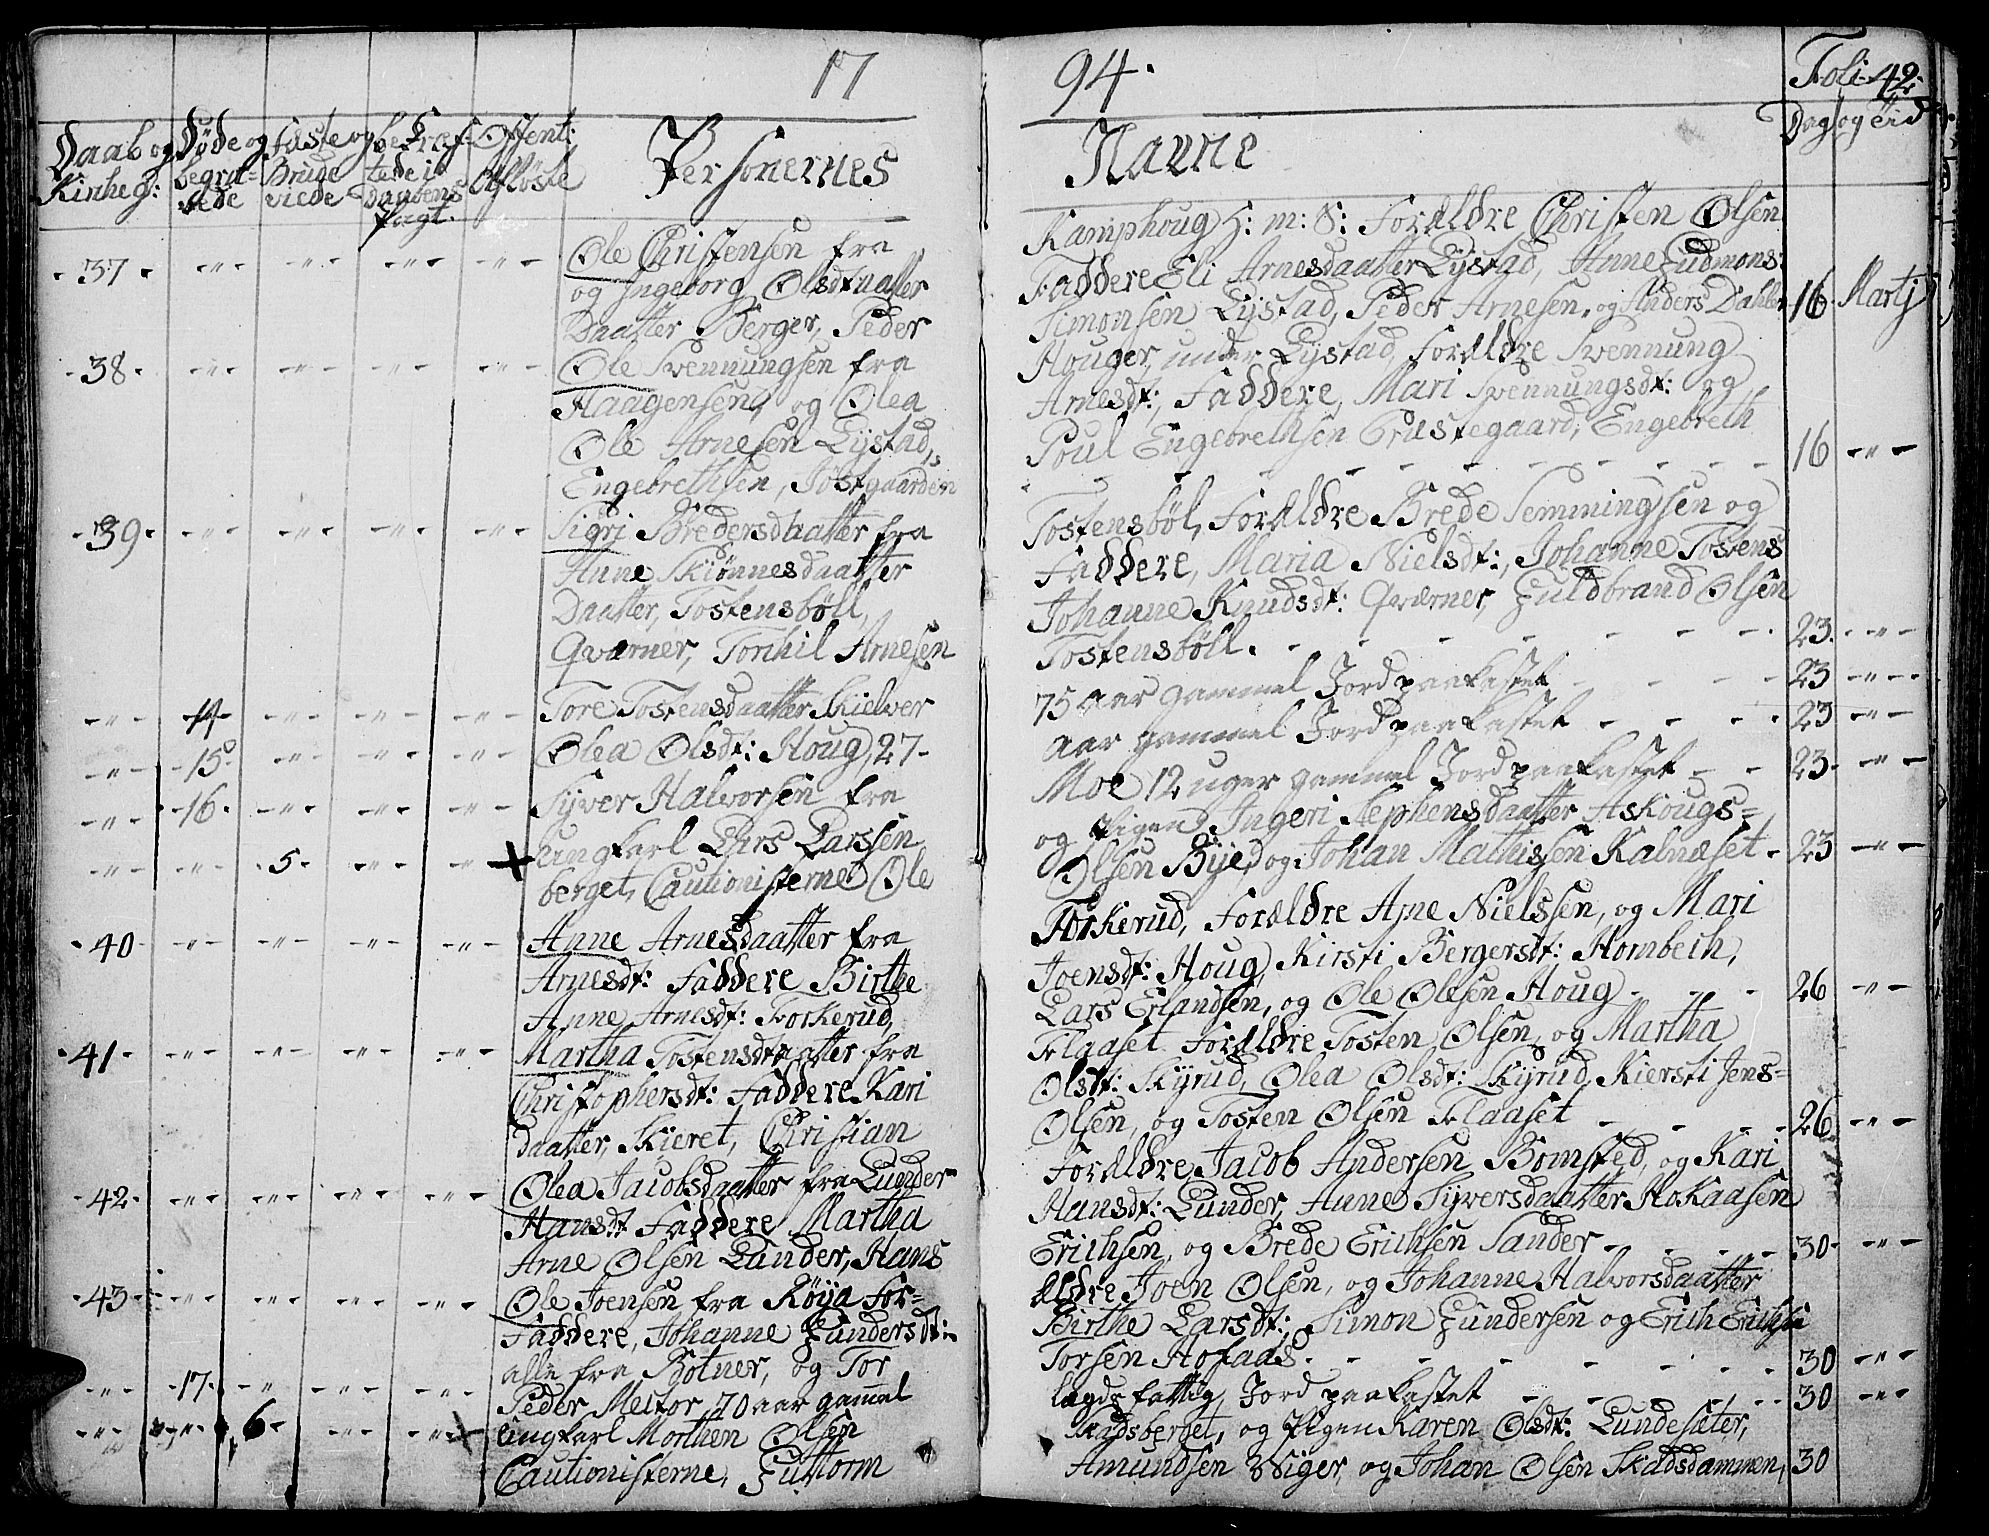 1794. Foli 42.
Daab og Kirkeg: Døde og begravede Fæste og Brude viede bekræftede i Daabens Pagt. Offent: Afløste Personernes Navne Dag og tid
37 Ole Christensen fra Kamphoug H: m: S: Forældre Christen Olsen
og Ingeborg Olsdtaatter Faddere Eli Arnesdaatter Lystad, Anne Gudmons:
Daatter Berger, Peder Simonsen Lystad, Peder Arnesen, og Anders Dahler 16 Martj
38 Ole Svennungsen fra Houger, under Lystad, Forældre Svennung
Haagensen, og Olea Arnesdt: Faddere, Mari Svennungsdt: og
Ole Arnesen Lystad, Poul Engebrethsen Præstegaard, Engebreth
Engebrethsen, Jøstgaarden 16
39 Sigri Bredersdaatter fra Tostensbøl, Forældre Brede Semmingsen og
Anne Skiønnesdaatter Faddere, Maria Nielsdt:, Johanne Tostens
Daatter, Tostensbøll, Johanne Knudsdt: Qværner, Guldbrand Olsen
Qværner, Torchil Arnesen Tostensbøll. 23.
14 Tore Tostensdaatter Skielver 75 aar gammel Jord paakastet 23
15 Olea Olsdt: Houg, 27- aar gammel Jord paakastet 23
16. Syver Halvorsen fra Moe 12 uger gammel Jord paakastet 23
5. + Ungkarl Lars Larssen og Pigen Ingeri Stephensdaatter Askougs=
berget, Cautionisterne Ole Olsen Bye, og Johan Mathissen Kalnæset 23
40 Anne Arnesdaatter fra Torkerud, Forældre Arne Nielssen, og Mari
Arnesdt: Faddere Birthe Joensdt: Houg, Kirsti Bergersdt: Hombech,
Anne Arnesdt: Torkerud, Lars Erlandsen, og Ole Olesen Houg 26
41 Martha Tostensdtaatter fra Flaaset Forældre Tosten Olsen, og Martha
Christophersdt: Faddere Kari Olsdt: Skyrud, Olea Olsdt: Skyrud, Kiersti Jens=
Daatter, Skieret, Christian Olsen, og Tosten Olsen Flaaset 26
42 Olea Jacobsdaatter fra Lunder Forældre Jacob Andersen Bomsted, og Kari
Hansdt Faddere Martha Hansdt: Lunder, Anne Syversdaatter Hokaasen
Arne Olsen Lunder, Hans Erichsen, og Brede Erichsen Sander 30
43 Ole Joensen fra Røya For= ældre Joen Olsen, og Johanne Halvorsdaatter
Faddere, Johanne Gundersdt: Birthe Larsdt:, Simon Gundersen og Erich Erichsen
alle fra Botner, og Tor Torsen Hofaas. 30
17. Peder Meltor 70 aar gammel lægds fattig, Jord paakastet 30
6 + Ungkarl Morthen Olsen Madsberget, og Pigen Karen Olsdt: Lundesæter,
Cautionisterne, Guttorm Amundsen Wiger, og Johan Olsen Skadsdammen, 30